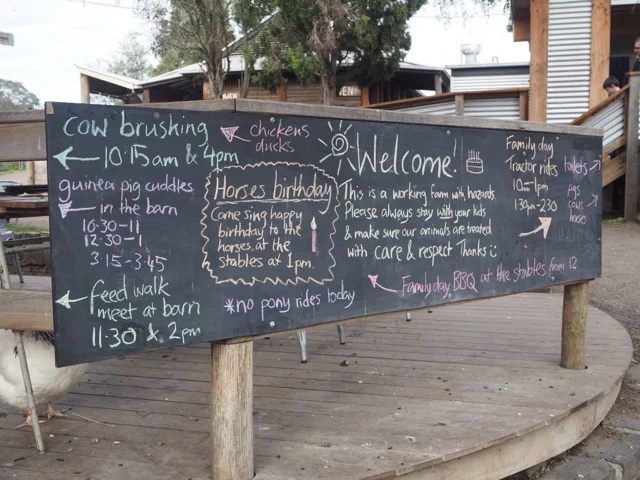 cow brushing
10:15am & 4pm
guinea pig cuddles
in the barn
10:30-11
12:30-1
3:15-3:45
feed walk
meet at barn
11.30 & 2pm
chickens
ducks
Horses birthday
Come sing happy
birthday to the
horses at the
stables at 1pm.
*no pony rides today
Welcome!
This is a working farm with hazards.
Please always stay with your kids
& make sure our animals are treated
with care & respect Thanks
Family day BBQ at the stables from 12
Family day
Tractor rides
10-1pm
130pm-230
toilets
pigs
cows
horses